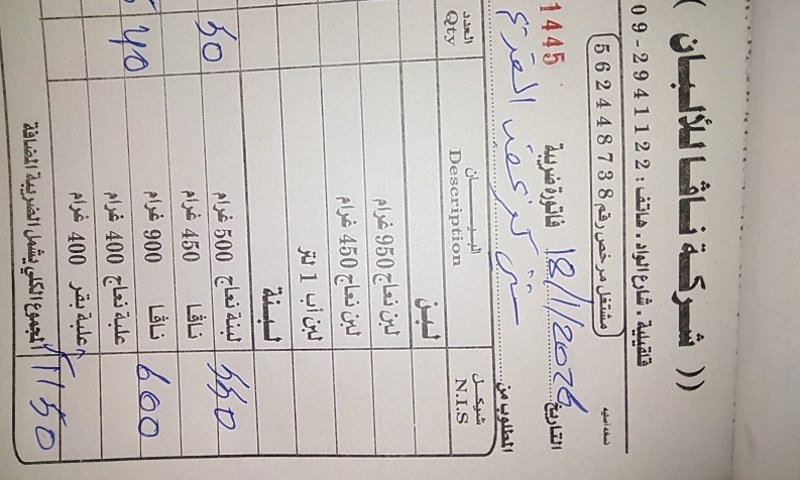 (( شركة ناڤا للألبان )
قلقيلية . شارع الواد . هاتف : 09-2941122
مشتغل مرخص رقم 562448738
نسخة أصلية
فاتورة ضريبة 1445
التاريخ 18/1/2026
المطلوب من
شيكل N.I.S البيــان Description العدد Qty
لبن
لبن نعاج 950 غرام
لبن نعاج 450 غرام
لبن أب 1 لتر
لبنة
550 لبنة نعاج 500 غرام 50
ناڤا 450 غرام
600 ناڤا 900 غرام 40
علبة نعاج 400 غرام
علبة بقر 400 غرام
1150 المجموع الكلي يشمل الضريبة المضافة